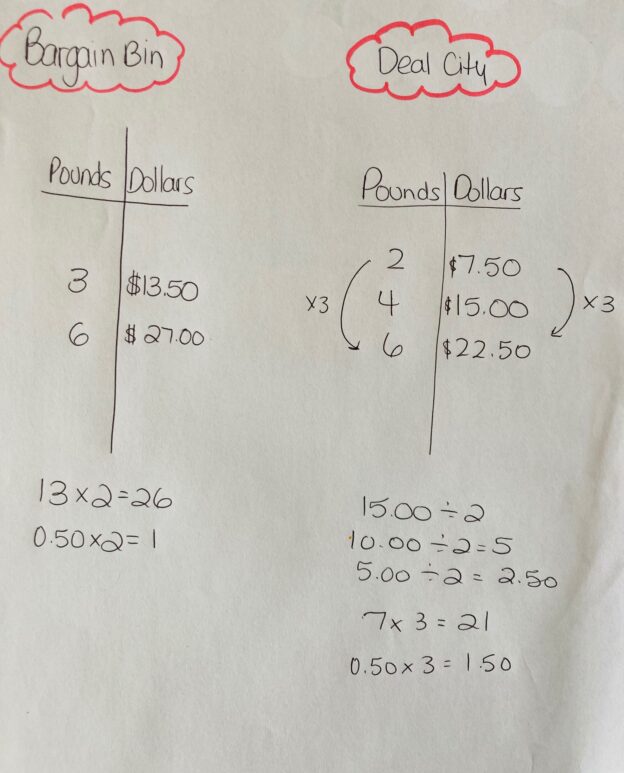 Bargain Bin
Pounds Dollars
3 $13.50
6 $27.00
13×2=26
0.50×2=1
Deal City
Pounds Dollars
2 $7.50
×3 4 $15.00 ×3
6 $22.50
15.00÷2
10.00÷2=5
5.00÷2=2.50
7×3=21
0.50×3=1.50